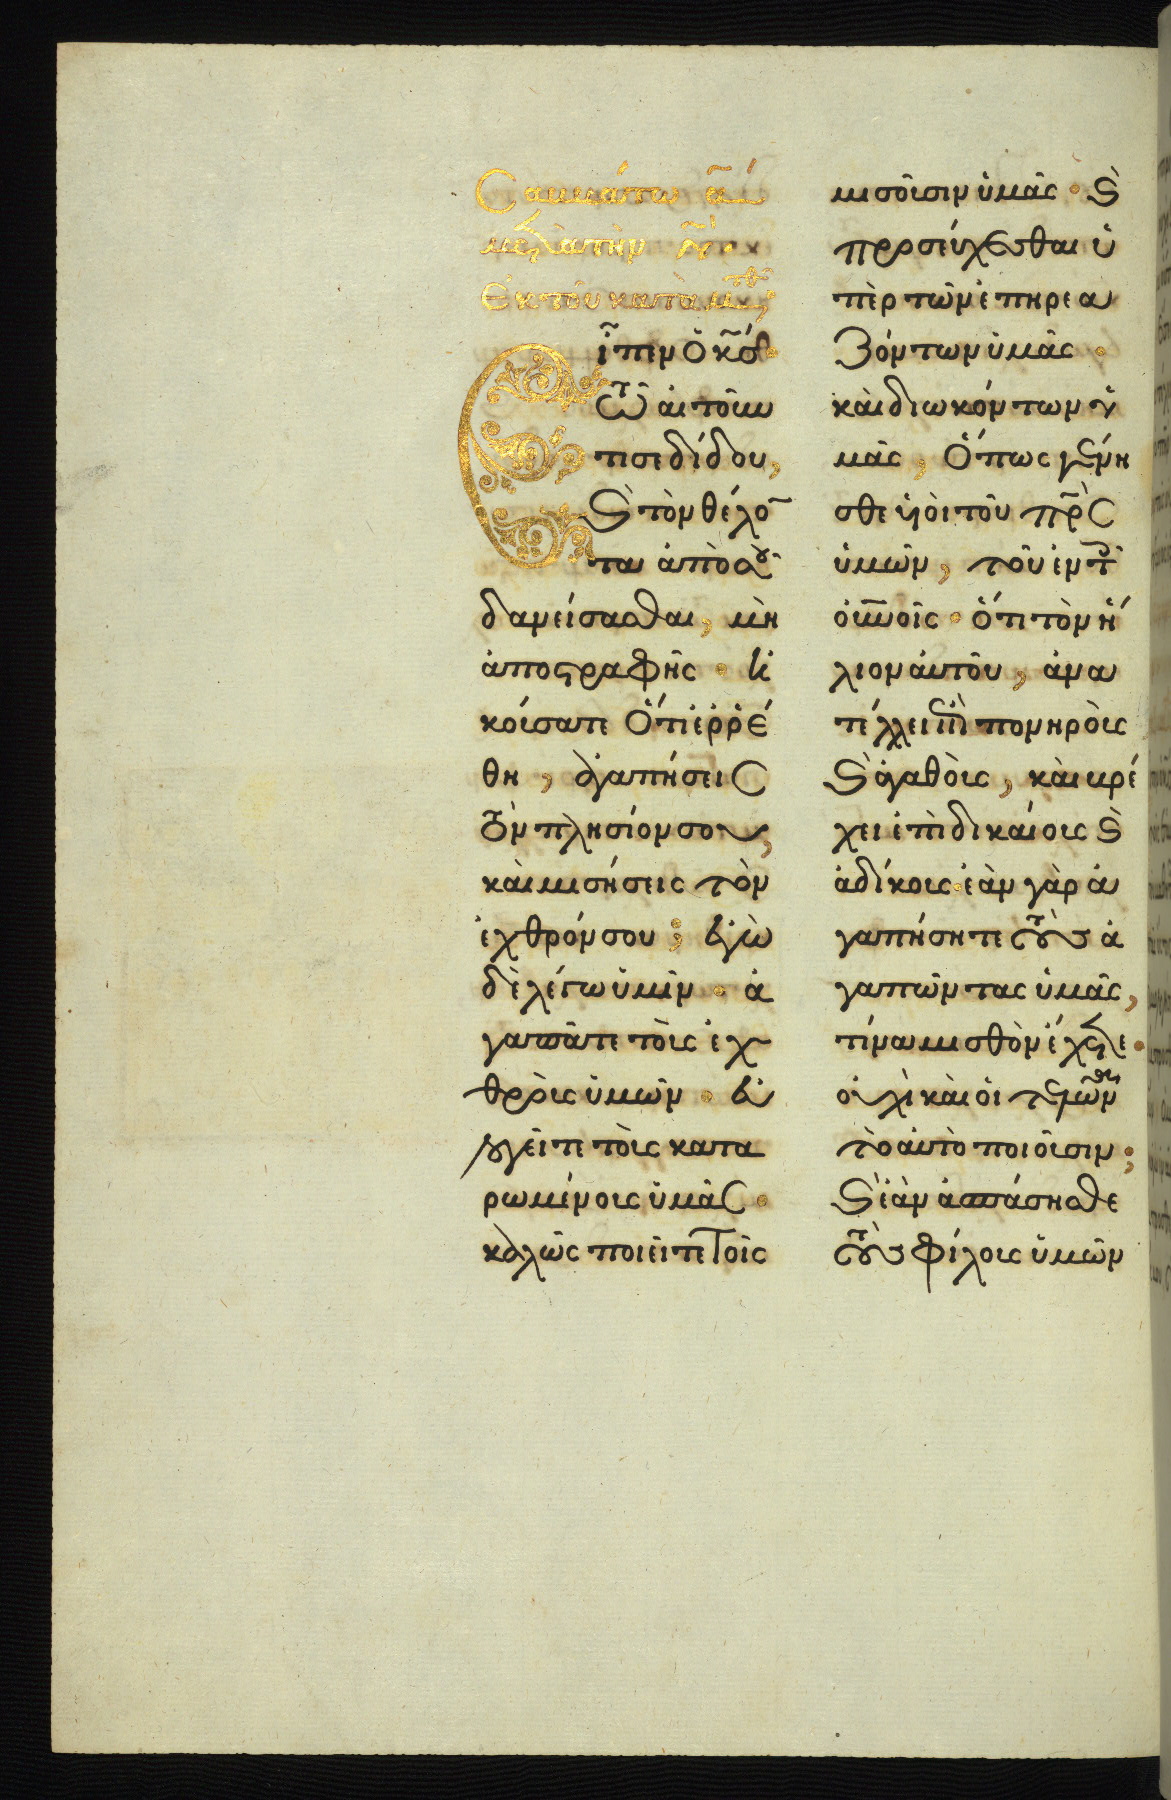 Σαββάτω α
μετὰ τὴν ν
Ἐκ τοῦ κατὰ Μτθ
Εἶπεν ὁ κς
Τῶ αἰτοῦν
τι σε δίδου,
καὶ τὸν θέλο
τα ἀπὸ σοῦ
δανείσασθαι, μὴ
ἀποστραφῆς · ἠ
κούσατε ὅτι ἐρρέ
θη, ἀγαπήσεις
τὸν πλησίον σου,
καὶ μισήσεις τὸν
ἐχθρόν σου; ἐγὼ
δὲ λέγω ὑμῖν · ἀ
γαπᾶτε τοὺς ἐχ
θροὺς ὑμῶν · εὐ
λογεῖτε τοὺς κατα
ρωμένους ὑμᾶς ·
καλῶς ποιεῖτε τοῖς
μισοῦσιν ὑμᾶς · καὶ
προσεύχεσθαι ὑ
πὲρ τῶν ἐπηρεα
ζόντων ὑμᾶς ·
καὶ διωκόντων ὑ
μᾶς, ὅπως γένη
σθε υἱοὶ τοῦ πρς
ὑμῶν, τοῦ ἐν τοῖς
οὐνοῖς · ὅτι τὸν ἥ
λιον αὐτοῦ, ἀνα
τέλλει ἐπὶ πονηροὺς
καὶ ἀγαθοὺς, καὶ βρέ
χει ἐπὶ δικαίους καὶ
ἀδίκους · ἐὰν γὰρ ἀ
γαπήσητε τοὺς ἀ
γαπῶντας ὑμᾶς,
τίνα μισθὸν ἔχετε ·
οὐχὶ καὶ οἱ τελῶναι
τὸ αὐτὸ ποιοῦσιν;
καὶ ἐὰν ἀσπάσησθε
τοὺς φίλους ὑμῶν